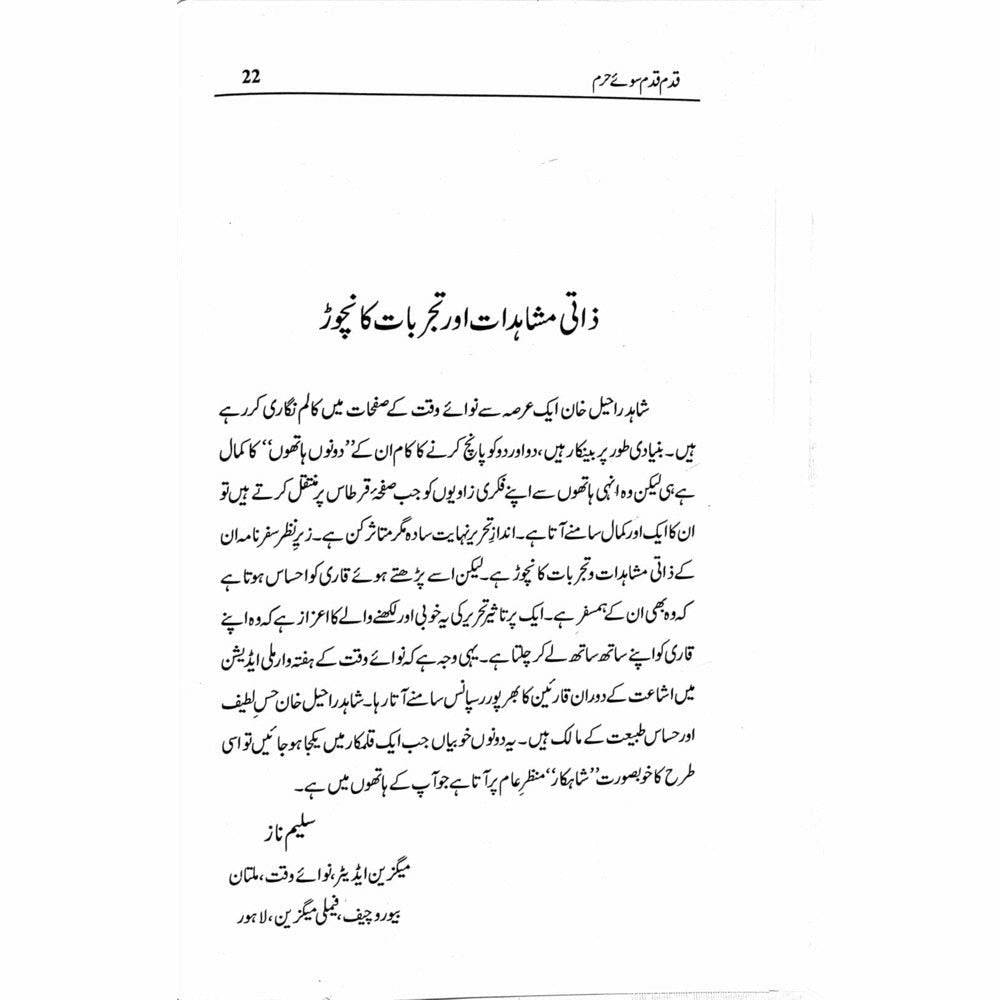 قدم قدم سوئے حرم 22
ذاتی مشاہدات اور تجربات کا نچوڑ
شاہد راحیل خان ایک عرصہ سے نوائے وقت کے صفحات میں کالم نگاری کر رہے
ہیں۔ بنیادی طور پر بینکار ہیں، دو اور دو کو پانچ کرنے کا کام ان کے ”دونوں ہاتھوں“ کا کمال
ہے ہی لیکن وہ انہی ہاتھوں سے اپنے فکری زاویوں کو جب صفحۂ قرطاس پر منتقل کرتے ہیں تو
ان کا ایک اور کمال سامنے آتا ہے۔ اندازِ تحریر نہایت سادہ مگر متاثر کن ہے۔ زیرِ نظر سفر نامہ ان
کے ذاتی مشاہدات و تجربات کا نچوڑ ہے۔ لیکن اسے پڑھتے ہوئے قاری کو احساس ہوتا ہے
کہ وہ بھی ان کے ہمسفر ہے۔ ایک پرتاثیر تحریر کی یہ خوبی اور لکھنے والے کا اعزاز ہے کہ وہ اپنے
قاری کو اپنے ساتھ ساتھ لے کر چلتا ہے۔ یہی وجہ ہے کہ نوائے وقت کے ہفتہ وار ملی ایڈیشن
میں اشاعت کے دوران قارئین کا بھرپور رسپانس سامنے آتا رہا۔ شاہد راحیل خان حسِ لطیف
اور حساس طبیعت کے مالک ہیں۔ یہ دونوں خوبیاں جب ایک قلمکار میں یکجا ہو جائیں تو اسی
طرح کا خوبصورت ”شاہکار“ منظرِ عام پر آتا ہے جو آپ کے ہاتھوں میں ہے۔
سلیم ناز
میگزین ایڈیٹر، نوائے وقت، ملتان
بیورو چیف، فیملی میگزین، لاہور